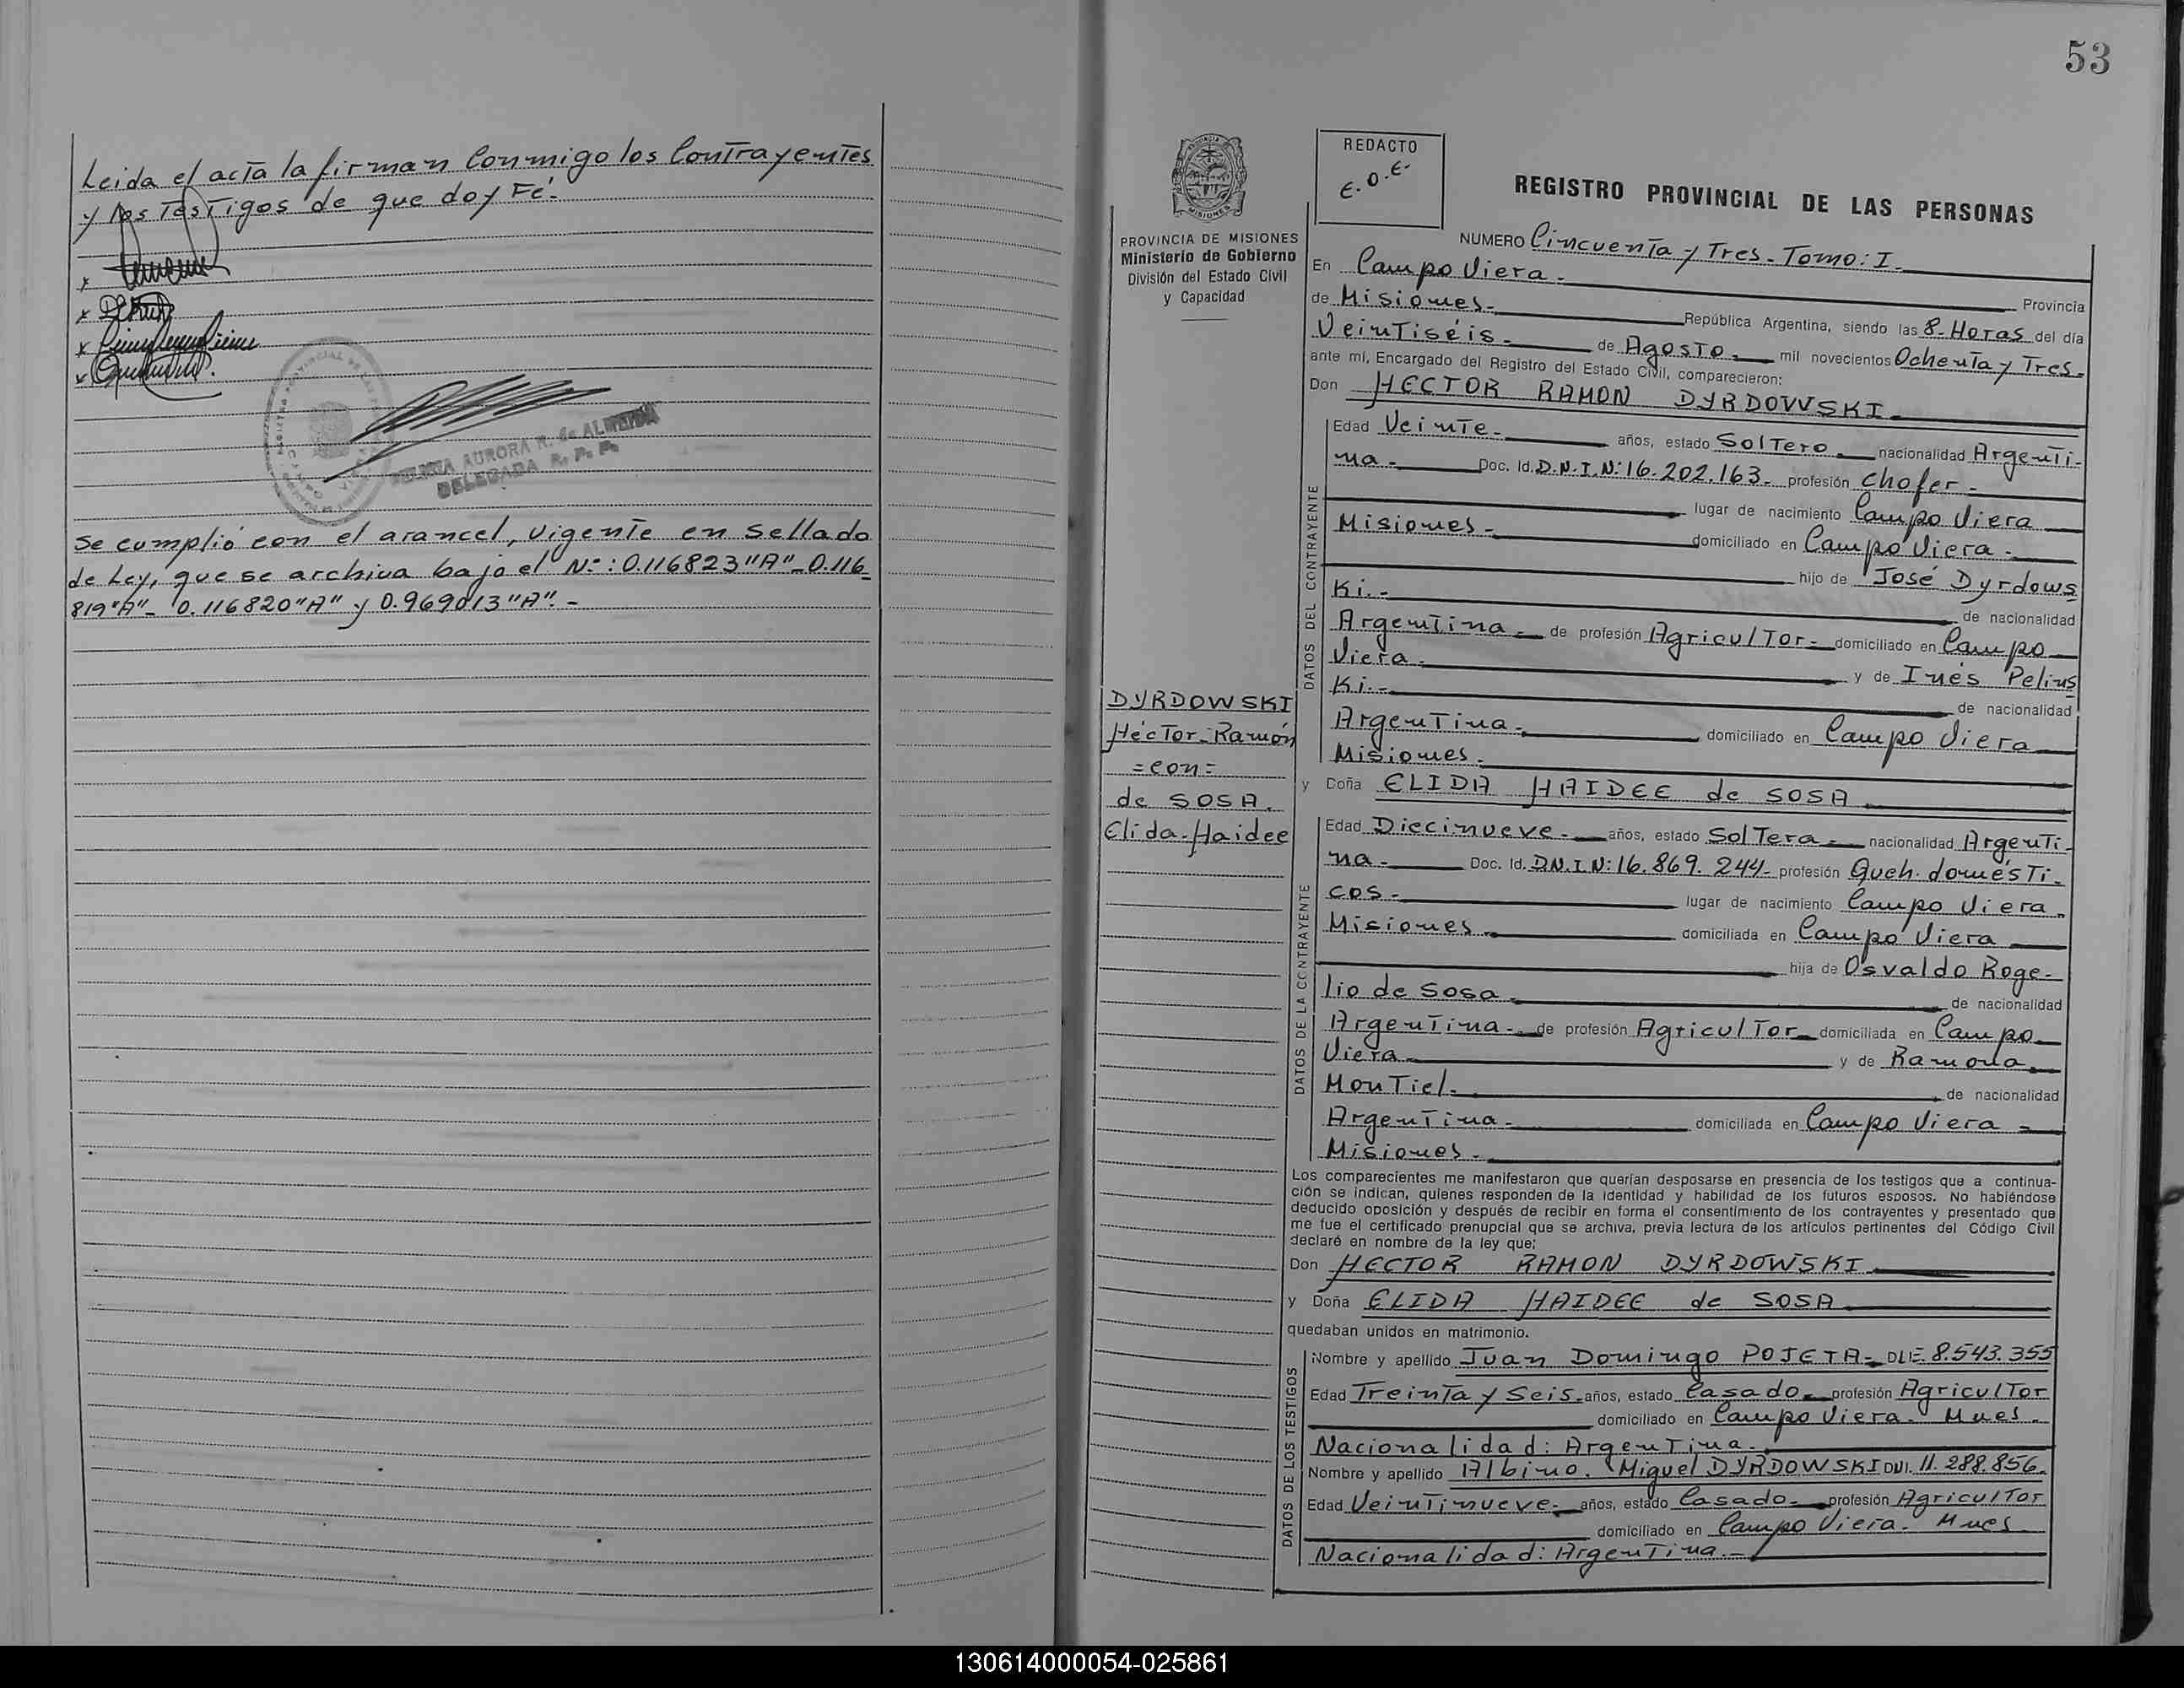 Leida el acta la firman Conmigo los Contrayentes
y los Testigos de que doy Fé.
AURORA R. de ALMEIDA
DELEGADA R. P. P.
Se cumplió con el arancel, vigente en sellado
de Ley, que se archiva bajo el N°: 0.116823"A"_0.116_
819"A"_ 0.116820"A" y 0.969013"A".-
53
PROVINCIA DE MISIONES
Ministerio de Gobierno
División del Estado Civil
y Capacidad
REDACTO
E.O.E.
REGISTRO PROVINCIAL DE LAS PERSONAS
NUMERO Cincuenta y Tres. Tomo: I.
En Campo Viera.- Provincia
de Misiones. República Argentina, siendo las 8. Horas del día
Veintiséis. de Agosto. mil novecientos Ochenta y Tres.
ante mí, Encargado del Registro del Estado Civil, comparecieron:
Don HECTOR RAMON DYRDOWSKI.
DATOS DEL CONTRAYENTE
Edad Veinte. años, estado Soltero. nacionalidad Argenti-
na. Doc. Id. D.N.I.N: 16.202.163. profesión Chofer.-
lugar de nacimiento Campo Viera
Misiones. domiciliado en Campo Viera.
hijo de José Dyrdows
Ki.- de nacionalidad
Argentina. de profesión Agricultor. domiciliado en Campo
Viera. y de Inés Pelins
Ki.- de nacionalidad
Argentina. domiciliado en Campo Viera
Misiones.
DYRDOWSKI
Héctor-Ramón
=con=
de SOSA.
Elida-Haidee
y Doña ELIDA HAIDEE de SOSA
DATOS DE LA CONTRAYENTE
Edad Diecinueve. años, estado Soltera. nacionalidad Argenti-
na. Doc. Id. D.N.I.N: 16.869.244- profesión Queh. domésti-
cos. lugar de nacimiento Campo Viera.
Misiones. domiciliada en Campo Viera
hija de Osvaldo Roge-
lio de Sosa. de nacionalidad
Argentina. de profesión Agricultor. domiciliada en Campo
Viera. y de Ramona
Montiel. de nacionalidad
Argentina. domiciliada en Campo Viera
Misiones.
Los comparecientes me manifestaron que querían desposarse en presencia de los testigos que a continua-
ción se indican, quienes responden de la identidad y habilidad de los futuros esposos. No habiéndose
deducido oposición y después de recibir en forma el consentimiento de los contrayentes y presentado que
me fue el certificado prenupcial que se archiva, previa lectura de los artículos pertinentes del Código Civil
declaré en nombre de la ley que:
Don HECTOR RAMON DYRDOWSKI
y Doña ELIDA HAIDEE de SOSA
quedaban unidos en matrimonio.
DATOS DE LOS TESTIGOS
Nombre y apellido Juan Domingo POJETA- DLE. 8.543.355
Edad Treinta y Seis. años, estado Casado. profesión Agricultor
domiciliado en Campo Viera. Mnes.
Nacionalidad: Argentina.
Nombre y apellido Albino. Miguel DYRDOWSKI DNI. 11.288.856.
Edad Veintinueve. años, estado Casado. profesión Agricultor
domiciliado en Campo Viera. Mnes
Nacionalidad: Argentina.-
130614000054-025861